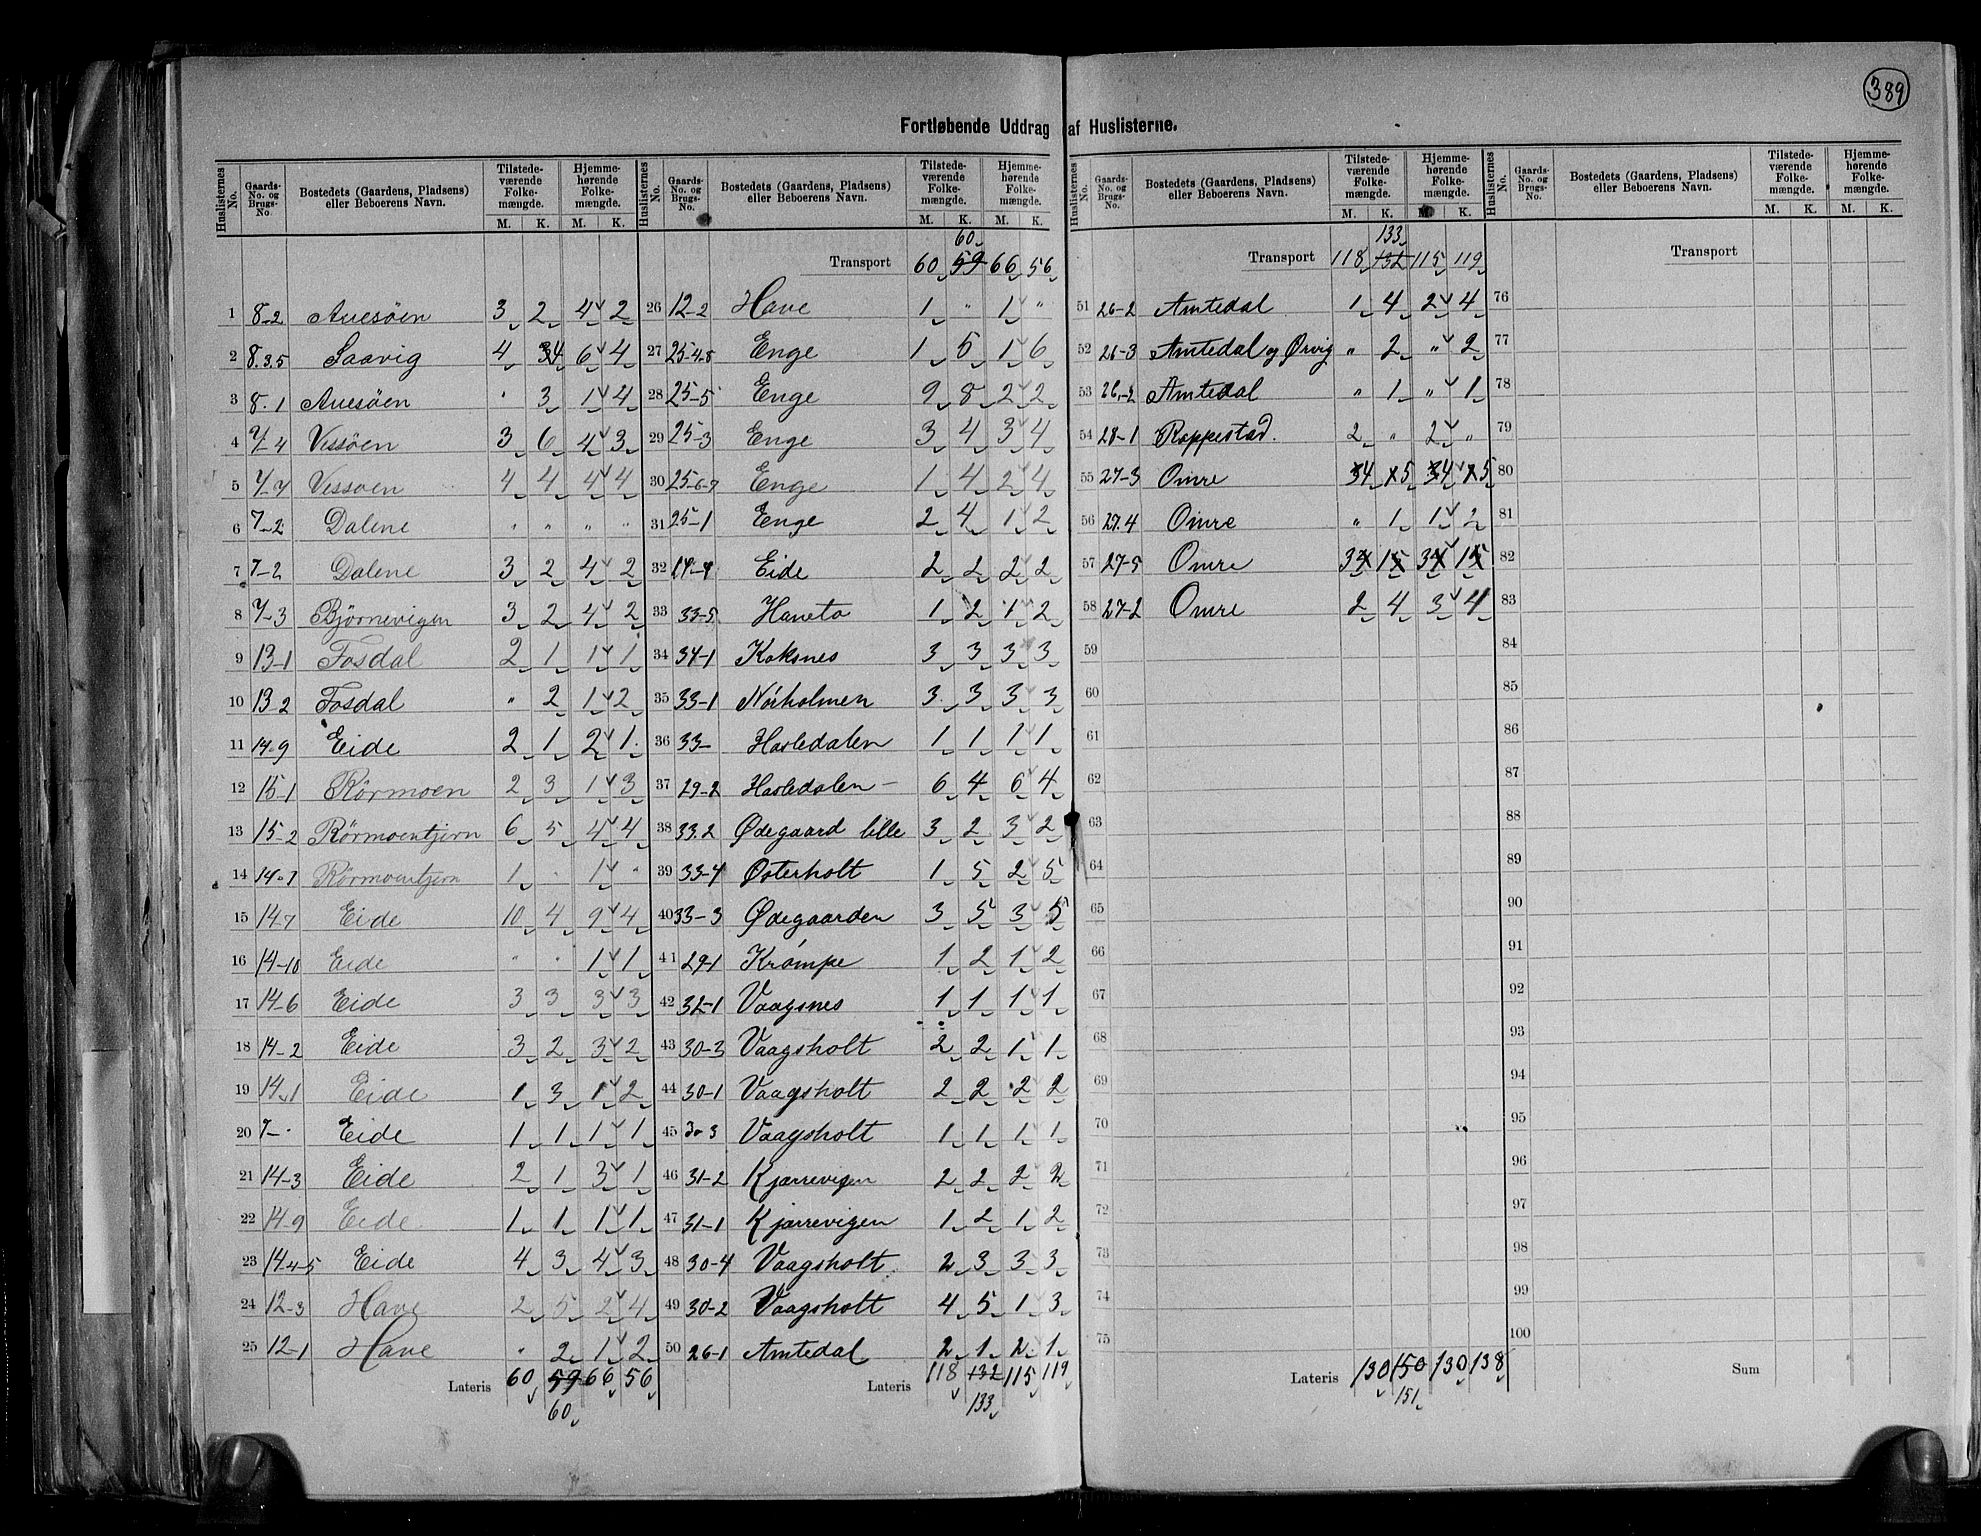 389
Fortløbende Uddrag af Huslisterne.
Huslisternes No. | Gaards-No. og Brugs-No. | Bostedets (Gaardens, Pladsens) eller Beboerens Navn. | Tilstedeværende Folkemængde. M. K. | Hjemmehørende Folkemængde. M. K.
1 8-2 Auesöen 3 2 4 2
2 8.3.5 Saavig 4 34 6 4
3 8.1 Auesöen " 3 1 4
4 7-4 Vissöen 3 6 4 3
5 7-7 Vissoen 4 4 4 4
6 7-2 Dalene " " " "
7 7-2 Dalene 3 2 4 2
8 7-3 Björnevigen 3 2 4 2
9 13-1 Fosdal 2 1 1 1
10 13-2 Fosdal " 2 1 2
11 14-9 Eide 2 1 2 1
12 15-1 Rörmoen 2 3 1 3
13 15-2 Rörmoentjern 6 5 4 4
14 14-1 Rörmoentjern 1 " 1 "
15 14-7 Eide 10 4 9 4
16 14-10 Eide " " 1 1
17 14-6 Eide 3 3 3 3
18 14-2 Eide 3 2 3 2
19 14-1 Eide 1 3 1 2
20 7-" Eide 1 1 1 1
21 14-3 Eide 2 1 3 1
22 14-9 Eide 1 1 1 1
23 14-4-5 Eide 4 3 4 3
24 12-3 Have 2 5 2 4
25 12-1 Have " 2 1 2
Lateris 60 59 66 56
60
60
Transport 60 59 66 56
26 12-2 Have 1 " 1 "
27 25-4-8 Enge 1 5 1 6
28 25-5 Enge 9 8 2 2
29 25-3 Enge 3 4 3 4
30 25-6-7 Enge 1 4 2 4
31 25-1 Enge 2 4 1 2
32 Eide 2 2 2 2
33 33-5 Haveto 1 2 1 2
34 34-1 Koksnes 3 3 3 3
35 33-1 Nörholmen 3 3 3 3
36 33- Hasledalen 1 1 1 1
37 29-2 Hasledalen - 6 4 6 4
38 33.2 Ødegaard lille 3 2 3 2
39 33-4 Østerholt 1 5 2 5
40 33-3 Ødegaarden 3 5 3 5
41 29-1 Krømpe 1 2 1 2
42 32-1 Vaagsnes 1 1 1 1
43 30-3 Vaagsholt 2 2 1 1
44 30-1 Vaagsholt 2 2 2 2
45 30 3 Vaagsholt 1 1 1 1
46 31-2 Kjærrevigen 2 2 2 2
47 31-1 Kjærrevigen 1 2 1 2
48 30-4 Vaagsholt 2 3 3 3
49 30-2 Vaagsholt 4 5 1 3
50 26-1 Amtedal 2 1 2 1
Lateris 118 132 115 119
133
133
Transport 118 132 115 119
51 26-2 Amtedal 1 4 2 4
52 26-3 Amtedal og Ørvig " 2 " 2
53 26-2 Amtedal " 1 " 1
54 28-1 Roppestad. 2 " 2 "
55 27-3 Omre 34 5 34 5
56 27.4 Omre " 1 1 2
57 27-5 Omre 3 1 3 1
58 27-2 Omre 2 4 3 4
59
60
61
62
63
64
65
66
67
68
69
70
71
72
73
74
75
Lateris 130 150 130 138
151
Transport
76
77
78
79
80
81
82
83
84
85
86
87
88
89
90
91
92
93
94
95
96
97
98
99
100
Sum